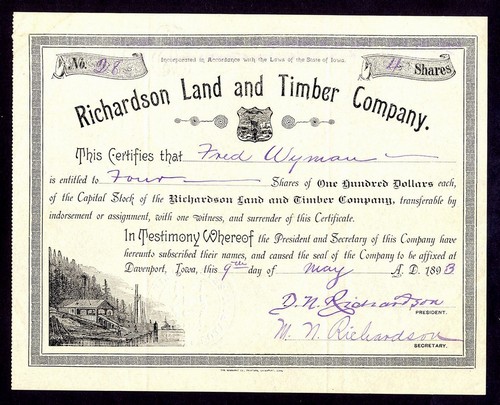 No. 28 Incorporated in Accordance with the Laws of the State of Iowa. 4 Shares
Richardson Land and Timber Company.
This Certifies that Fred Wyman
is entitled to Four Shares of One Hundred Dollars each,
of the Capital Stock of the Richardson Land and Timber Company, transferable by
indorsement or assignment, with one witness, and surrender of this Certificate.
In Testimony Whereof the President and Secretary of this Company have
hereunto subscribed their names, and caused the seal of the Company to be affixed at
Davenport, Iowa, this 9th day of May A. D. 1893
D. N. Richardson
PRESIDENT.
M. N. Richardson
SECRETARY.